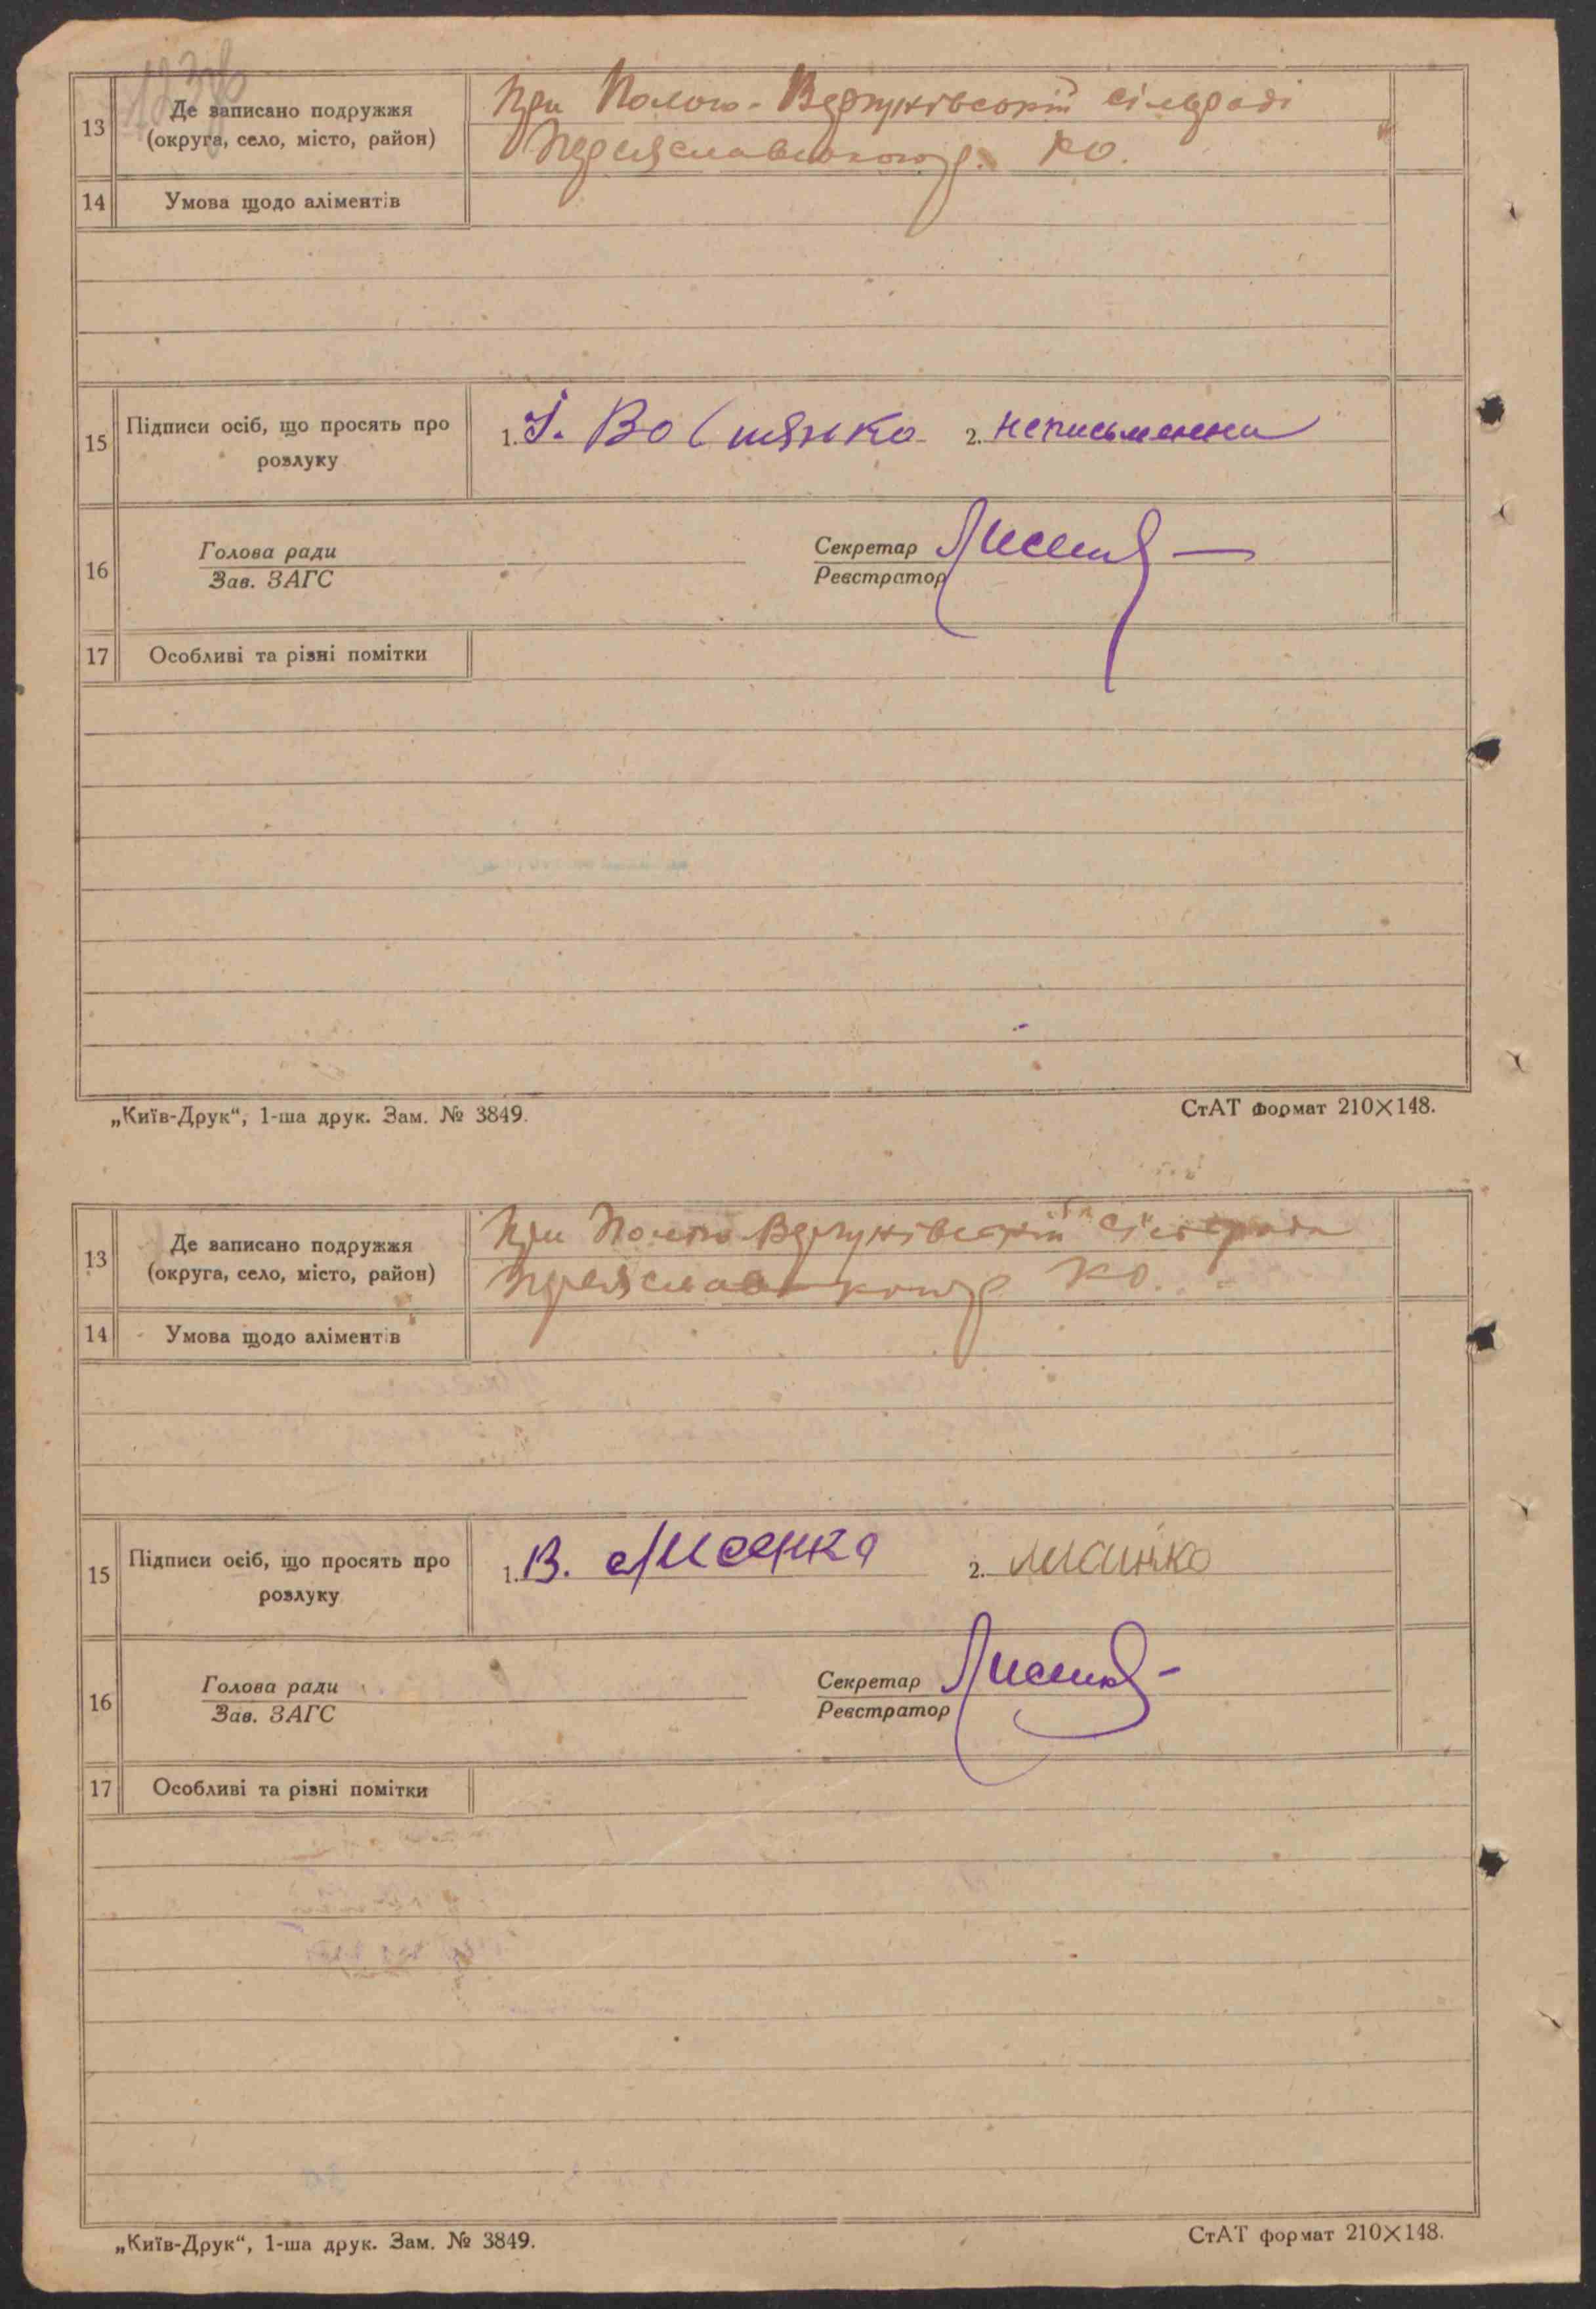 13
Де записано подружжя
(округа, село, місто, район)
При Полого-Вергунівській сільраді
Переяславського р. КО.
14
Умова щодо аліментів
15
Підписи осіб, що просять про
розлуку
1. І. Вовчянко 2. неписьменна
16
Голова ради
Зав. ЗАГС
Секретар
Реєстратор
17
Особливі та різні помітки
„Київ-Друк“, 1-ша друк. Зам. № 3849.
СтАТ формат 210×148.
13
Де записано подружжя
(округа, село, місто, район)
При Полого-Вергунівській сільраді
КО.
14
Умова щодо аліментів
15
Підписи осіб, що просять про
розлуку
1. В. Лисенко 2.
16
Голова ради
Зав. ЗАГС
Секретар
Реєстратор
17
Особливі та різні помітки
„Київ-Друк“, 1-ша друк. Зам. № 3849.
СтАТ формат 210×148.